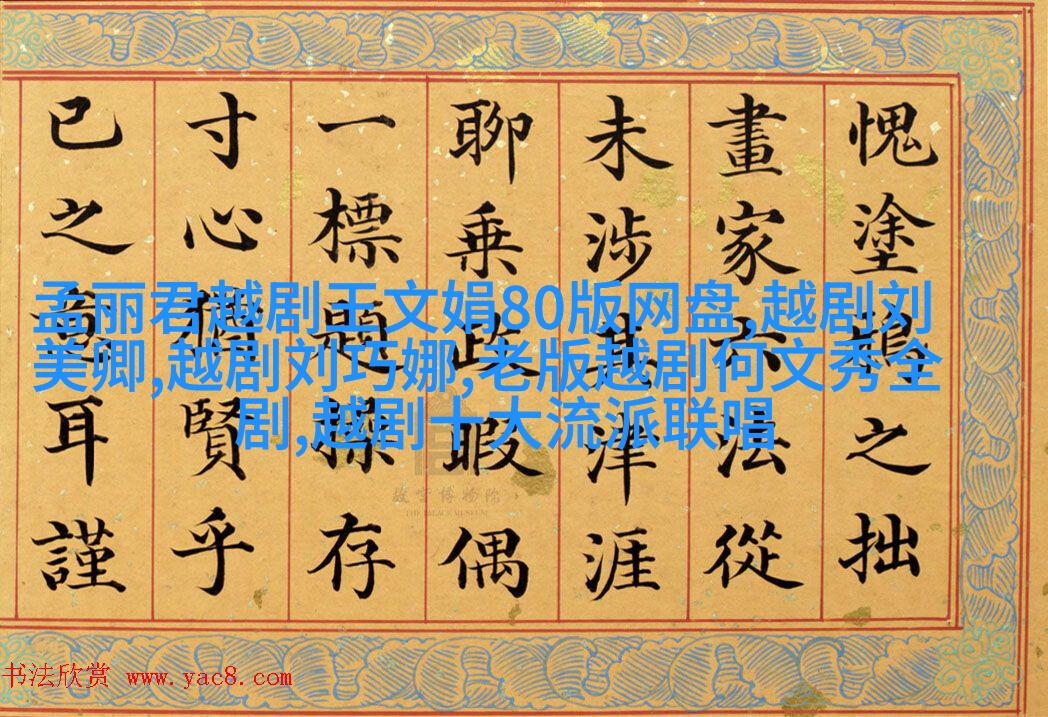 愧塗之拙
畫家六法從
未涉其津涯
聊乘政暇偶
一標題存
寸心賢乎
已之耳謹
孟丽君越剧王文娟80版网盘,越剧刘
美卿,越剧刘巧娜,老版越剧何文秀全
剧,越剧十大流派联唱
故宫博物院
THE PALACE MUSEUM
书法欣赏 www.yac8.com